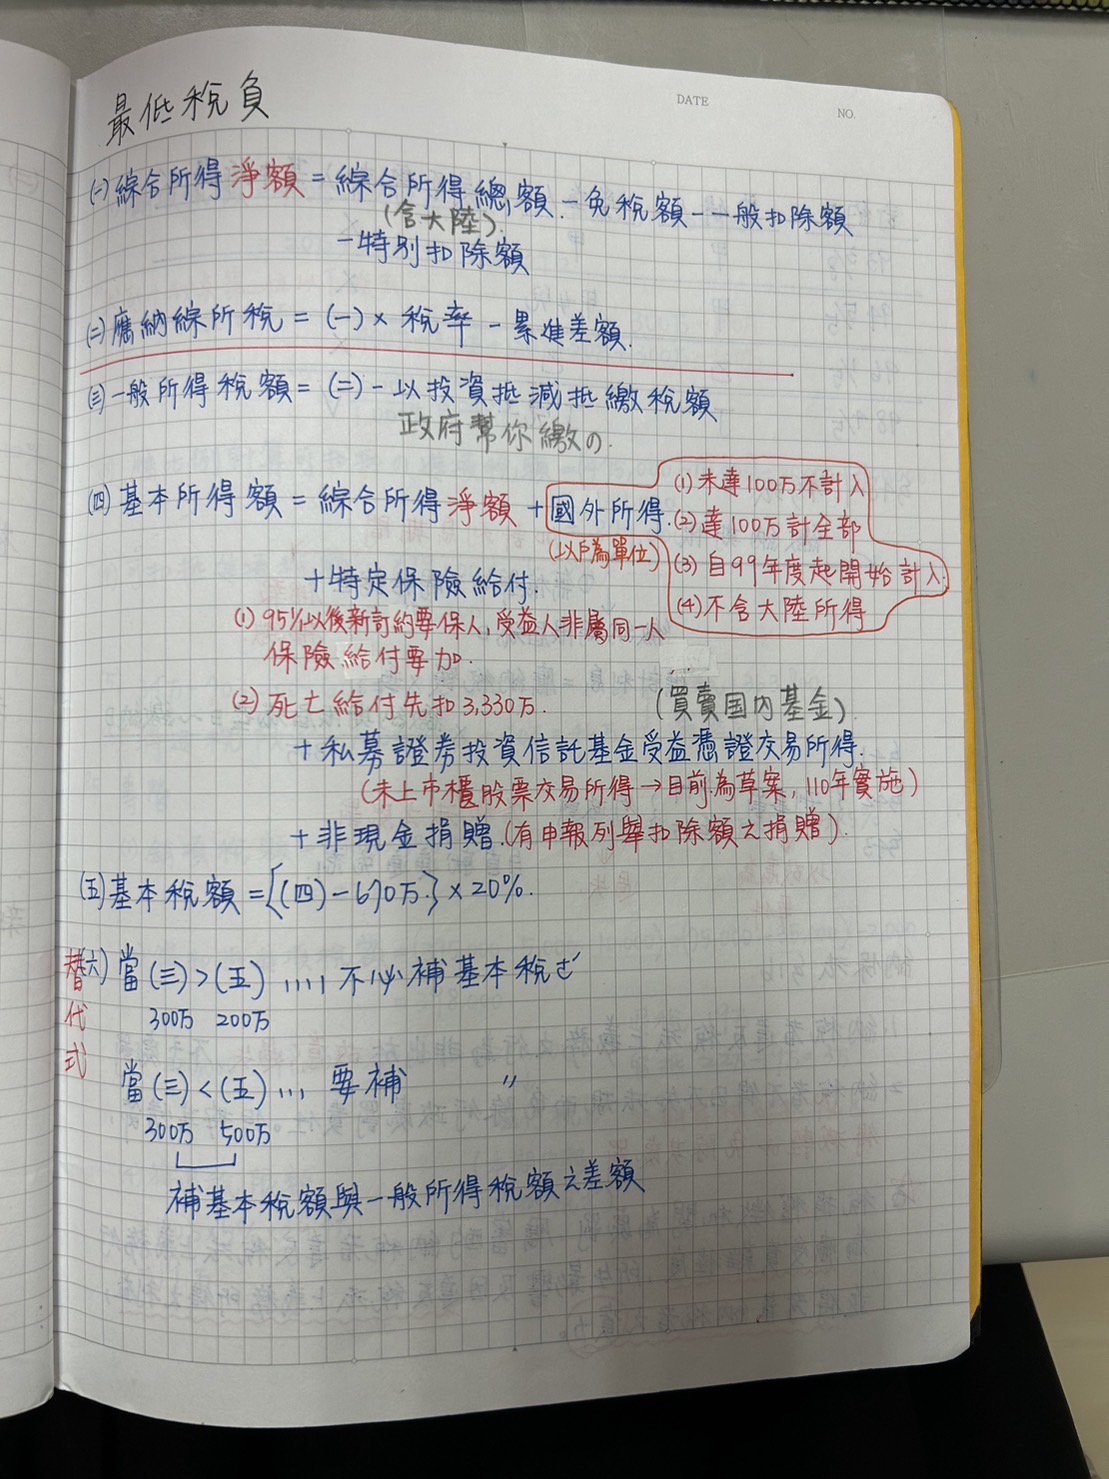 DATE
NO.
最低稅負
(一)綜合所得淨額=綜合所得總額-免稅額-一般扣除額
(含大陸)
-特別扣除額
(二)應納綜所稅=(一)×稅率-累進差額.
(三)一般所得稅額=(二)-以投資抵減抵繳稅額
政府幫你繳の.
(四)基本所得額=綜合所得淨額+國外所得.
(以戶為單位)
(1)未達100万不計入
(2)達100万計全部
(3)自99年度起開始計入.
(4)不含大陸所得
+特定保險給付.
(1)95/1/1以後新訂約要保人,受益人非屬同一人
保險給付要加.
(2)死亡給付先扣3,330万.
(買賣国内基金)
+私募證券投資信託基金受益憑證交易所得.
(未上市櫃股票交易所得→目前為草案,110年實施)
+非現金捐贈.(有申報列舉扣除額之捐贈).
(五)基本稅額={(四)-670万}×20%.
替代式
(六)當(三)>(五)....不必補基本稅
300万 200万
當(三)<(五)...要補 〃
300万 500万
補基本稅額與一般所得稅額之差額